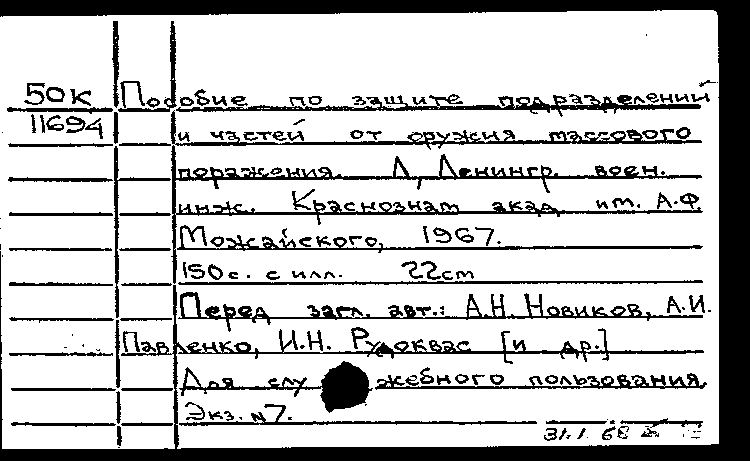 50к Пособие по защите подразделений
11694 и частей от оружия массового
поражения. Л., Ленингр. воен.
инж. Краснознам акад им. А.Ф.
Можайского, 1967.
150с. с илл. 22см
Перед загл. авт.: А.Н. Новиков, А.И.
Павленко, И.Н. Рудоквас [и др.]
Для служебного пользования.
Экз. №7.
31.1 68